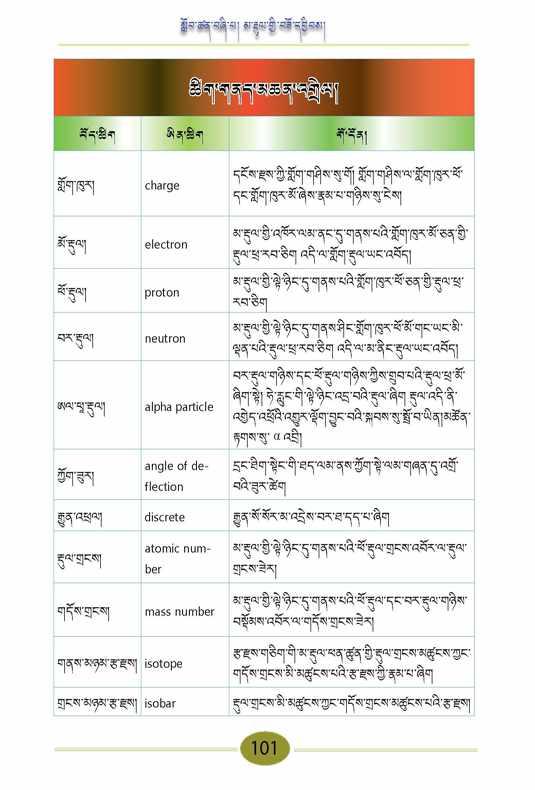 སློབ་ཚན་བཞི་པ། མ་རྡུལ་གྱི་བཟོ་དབྱིབས།
ཚིག་གནད་མཆན་འགྲེལ།
བོད་ཚིག ཨིན་ཚིག གོ་དོན།
གློག་ཁུར། charge དངོས་རྫས་ཀྱི་གློག་གཤིས་སུ་གོ། གློག་གཤིས་ལ་གློག་ཁུར་ཕོ་
དང་གློག་ཁུར་མོ་ཞེས་རྣམ་པ་གཉིས་སུ་ངེས།
མོ་རྡུལ། electron མ་རྡུལ་གྱི་འཁོར་ལམ་ནང་དུ་གནས་པའི་གློག་ཁུར་མོ་ཅན་གྱི་
རྡུལ་ཕྲ་རབ་ཅིག འདི་ལ་གློག་རྡུལ་ཡང་འབོད།
ཕོ་རྡུལ། proton མ་རྡུལ་གྱི་ལྟེ་ཉིང་དུ་གནས་པའི་གློག་ཁུར་ཕོ་ཅན་གྱི་རྡུལ་ཕྲ་
རབ་ཅིག
བར་རྡུལ། neutron མ་རྡུལ་གྱི་ལྟེ་ཉིང་དུ་གནས་ཤིང་གློག་ཁུར་ཕོ་མོ་གང་ཡང་མི་
ལྡན་པའི་རྡུལ་ཕྲ་རབ་ཅིག འདི་ལ་མ་ནིང་རྡུལ་ཡང་འབོད།
ཨལ་ཕཱ་རྡུལ། alpha particle བར་རྡུལ་གཉིས་དང་ཕོ་རྡུལ་གཉིས་ཀྱིས་གྲུབ་པའི་རྡུལ་ཕྲ་མོ་
ཞིག་སྟེ། ཧེ་རླུང་གི་ལྟེ་ཉིང་འདྲ་བའི་རྡུལ་ཞིག རྡུལ་འདི་ནི་
འགྱེད་འཕྲོའི་འགྱུར་ལྡོག་བྱུང་བའི་སྐབས་སུ་སྤྲོ་བ་ཡིན།མཚོན་
རྟགས་སུ་ α འབྲི།
ཀྱོག་ཟུར། angle of de- དྲང་ཐིག་སྟེང་གི་ཐད་ལམ་ནས་ཀྱོག་སྟེ་ལམ་གཞན་དུ་འགྲོ་
flection བའི་ཟུར་ཚེག
རྒྱུན་འཕྲལ། discrete རྒྱུན་སོ་སོར་མ་འདྲེས་བར་ཐ་དད་པ་ཞིག
རྡུལ་གྲངས། atomic num- མ་རྡུལ་གྱི་ལྟེ་ཉིང་དུ་གནས་པའི་ཕོ་རྡུལ་གྲངས་འབོར་ལ་རྡུལ་
ber གྲངས་ཟེར།
གདོས་གྲངས། mass number མ་རྡུལ་གྱི་ལྟེ་ཉིང་དུ་གནས་པའི་ཕོ་རྡུལ་དང་བར་རྡུལ་གཉིས་
བསྡོམས་འབོར་ལ་གདོས་གྲངས་ཟེར།
གནས་མཉམ་རྩ་རྫས། isotope རྩ་རྫས་གཅིག་གི་མ་རྡུལ་ཕན་ཚུན་གྱི་རྡུལ་གྲངས་མཚུངས་ཀྱང་
གདོས་གྲངས་མི་མཚུངས་པའི་རྩ་རྫས་ཀྱི་རྣམ་པ་ཞིག
གྲངས་མཉམ་རྩ་རྫས། isobar རྡུལ་གྲངས་མི་མཚུངས་ཀྱང་གདོས་གྲངས་མཚུངས་པའི་རྩ་རྫས།
101